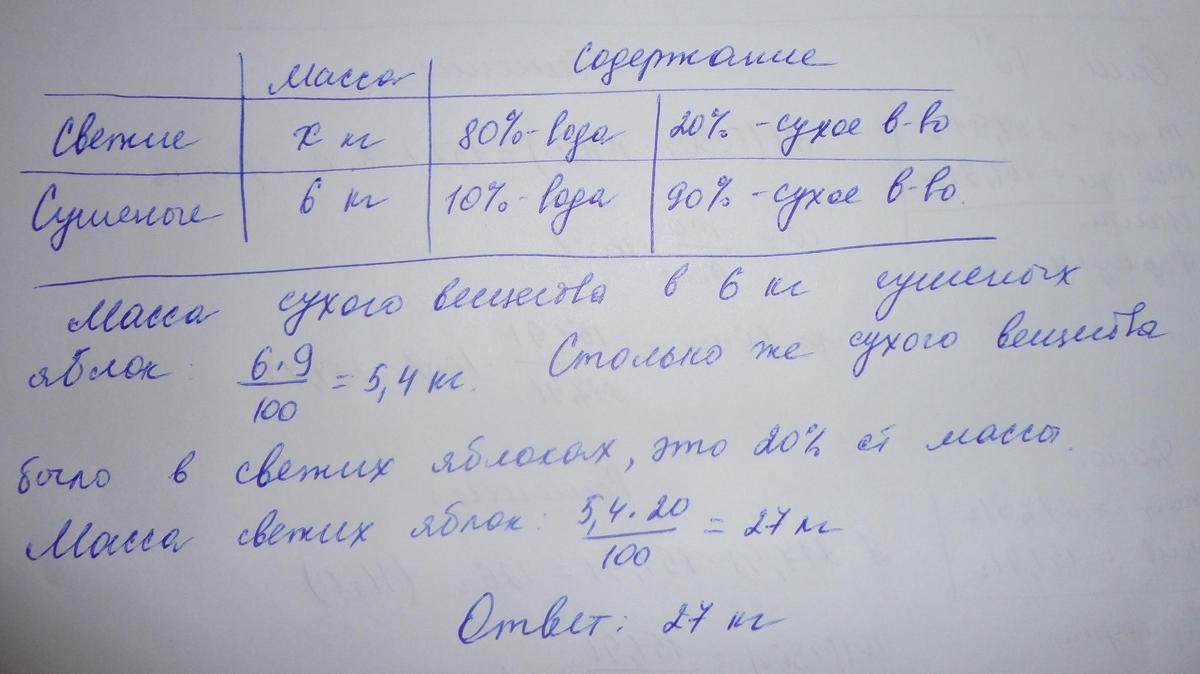 Масса Содержание
Свежие x кг 80%-вода 20%-сухое в-во
Сушеные 6 кг 10%-вода 90%-сухое в-во.
Масса сухого вещества в 6 кг сушеных
яблок: 6·9/100 = 5,4 кг. Столько же сухого вещества
было в свежих яблоках, это 20% от массы.
Масса свежих яблок: 5,4·20/100 = 27 кг
Ответ: 27 кг